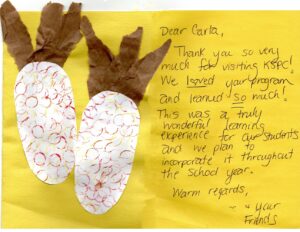 Dear Carla,
Thank you so very
much for visiting KSBC!
We loved your program
and learned so much!
This was a truly
wonderful learning
experience for our students
and we plan to
incorporate it throughout
the school year.
Warm regards,
~ your
Friends